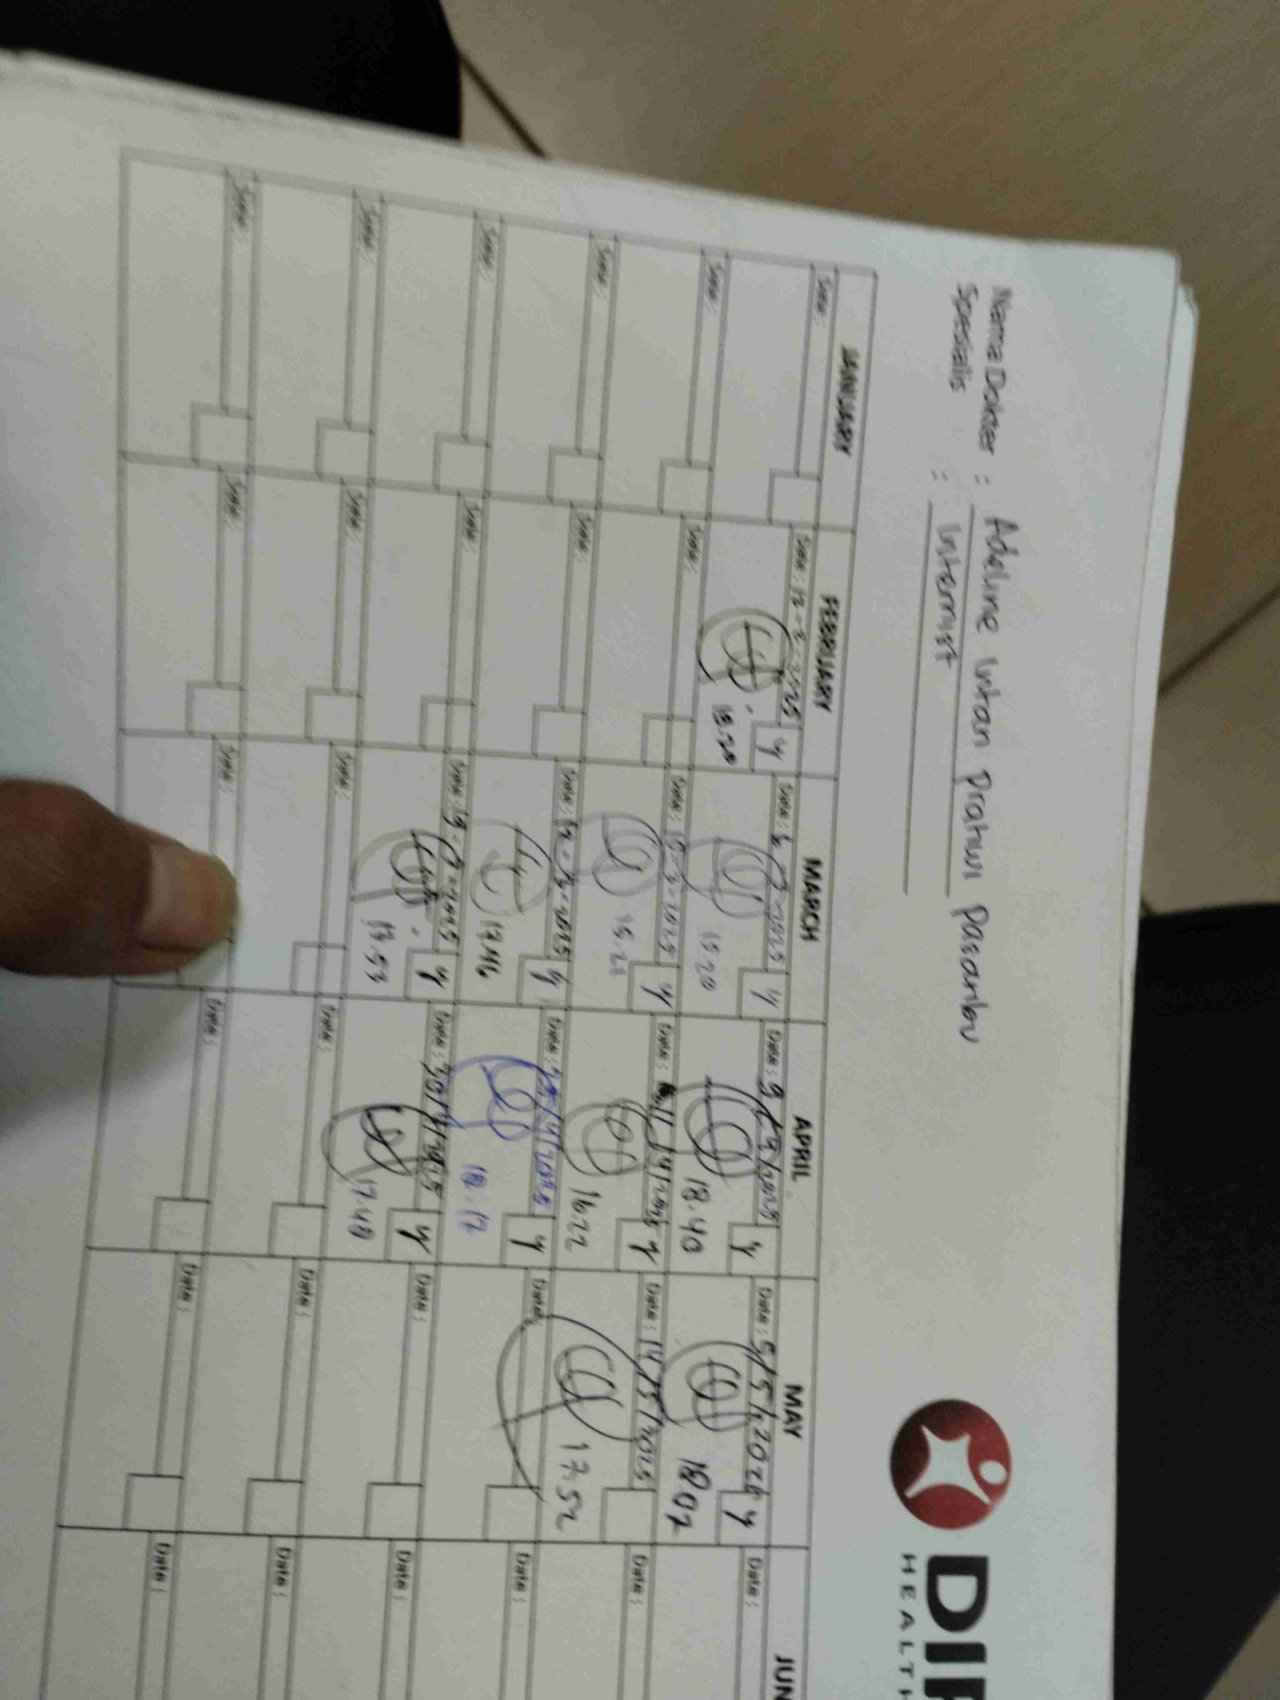 Nama Dokter : Adeline Intan Pratiwi Pasaribu
Spesialis : Internist
DIP
HEALTH
JANUARY FEBRUARY MARCH APRIL MAY JUN
Date : Date : Date : Date : 9/4/2025 Date : 5/5/2025 Date :
y y y y
18.20 15.20 18.40 18.07
Date : Date : Date : 10-3-2025 Date : Date : 14/5/2025 Date :
y y
15.21 16.22 17.52
Date : Date : Date : 12-3-2025 Date : 25/4/2025 Date : Date :
y y
17.46 18.17
Date : Date : Date : 19-3-2025 Date : 30/4/2025 Date : Date :
y y
17.53 17.49
Date : Date : Date : Date : Date : Date :
Date : Date : Date : Date : Date : Date :